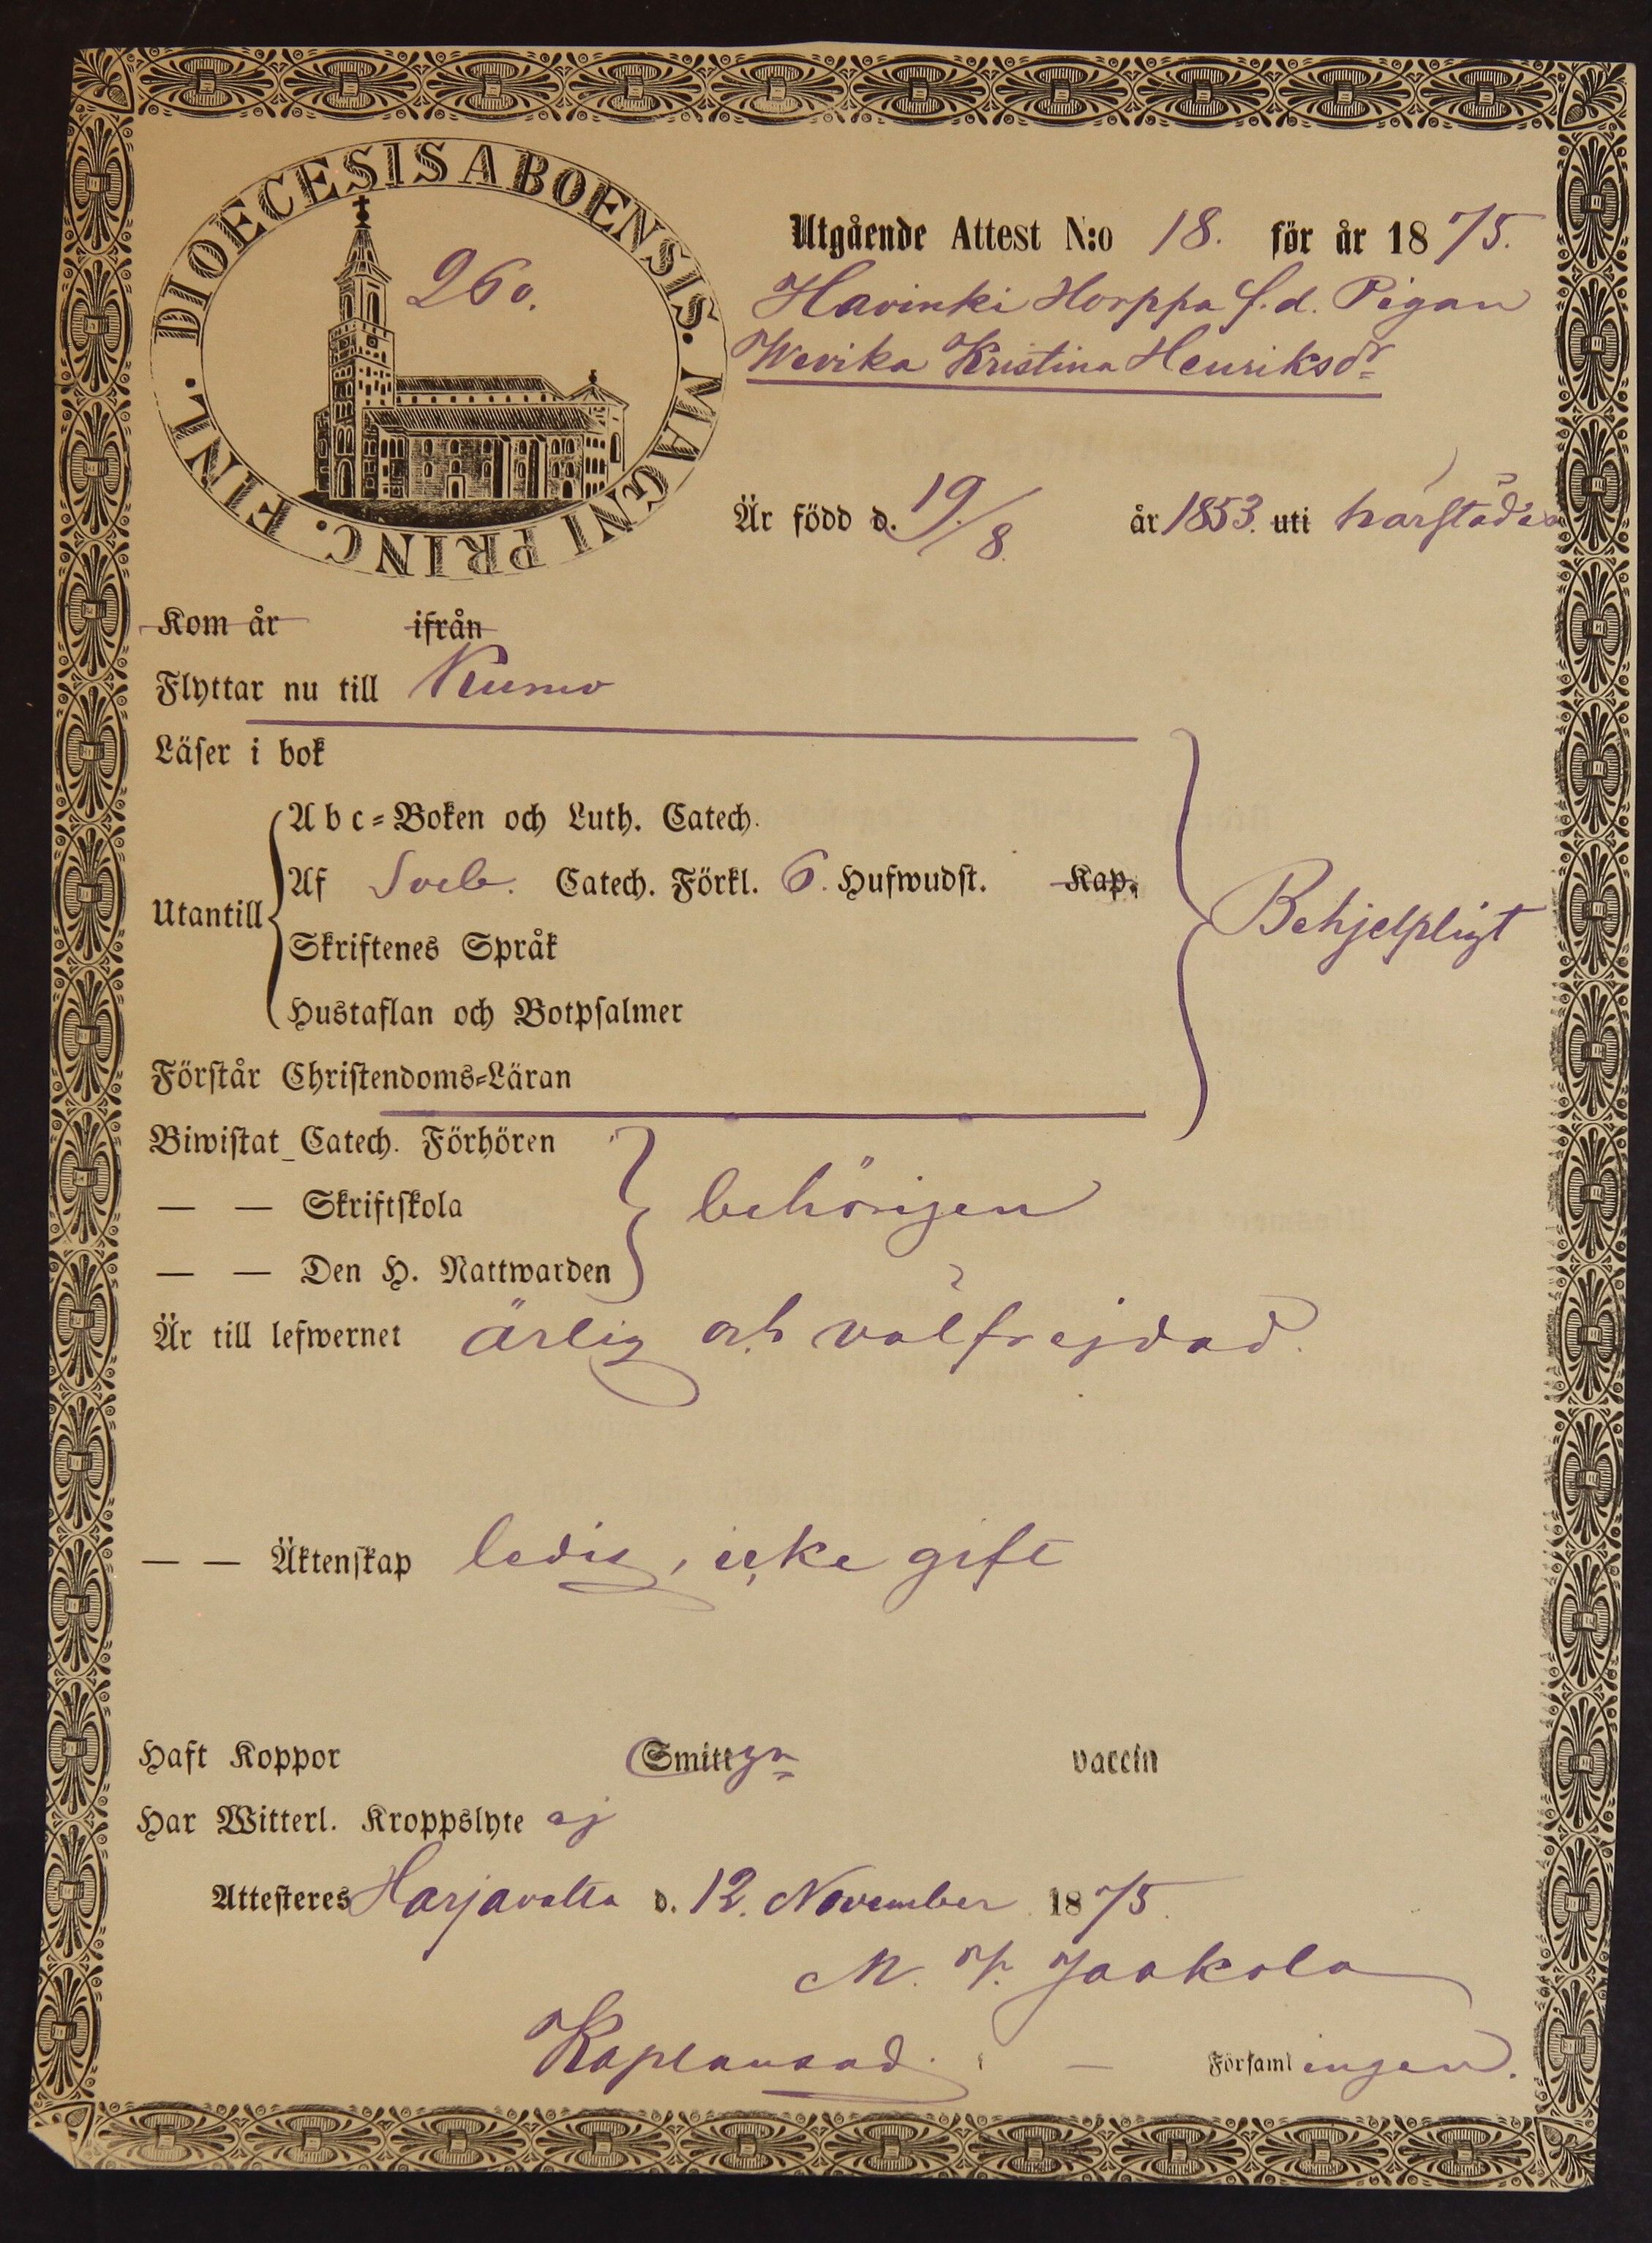 DIOECESIS ABOENSIS. MAGNI PRINC. FINL.
260.
Utgående Attest N:o 18. för år 1875.
Havinki Horppa f.d. Pigan
Wevika Kristina Henriksdr
Är född d. 19/8. år 1853. uti härstädes
Kom år ifrån
Flyttar nu till Kumo
Läser i bok
Abc=Boken och Luth. Catech.
Af Sveb. Catech. Förkl. 6. Hufwudst. Kap.
Utantill
Behjelpligt
Skriftenes Språk
Hustaflan och Botpsalmer
Förstår Christendoms=Läran
Biwistat Catech. Förhören
— — Skriftskola behörigen
— — Den H. Nattwarden
Är till lefwernet ärlig och välfrejdad.
— — Äktenskap ledig, icke gift
Haft Koppor Smitt vaccin
Har Witterl. Kroppslyte ej
Attesteres Harjavalta d. 12. November 1875.
M. Jaakola
Kaplansad. Församlingen.